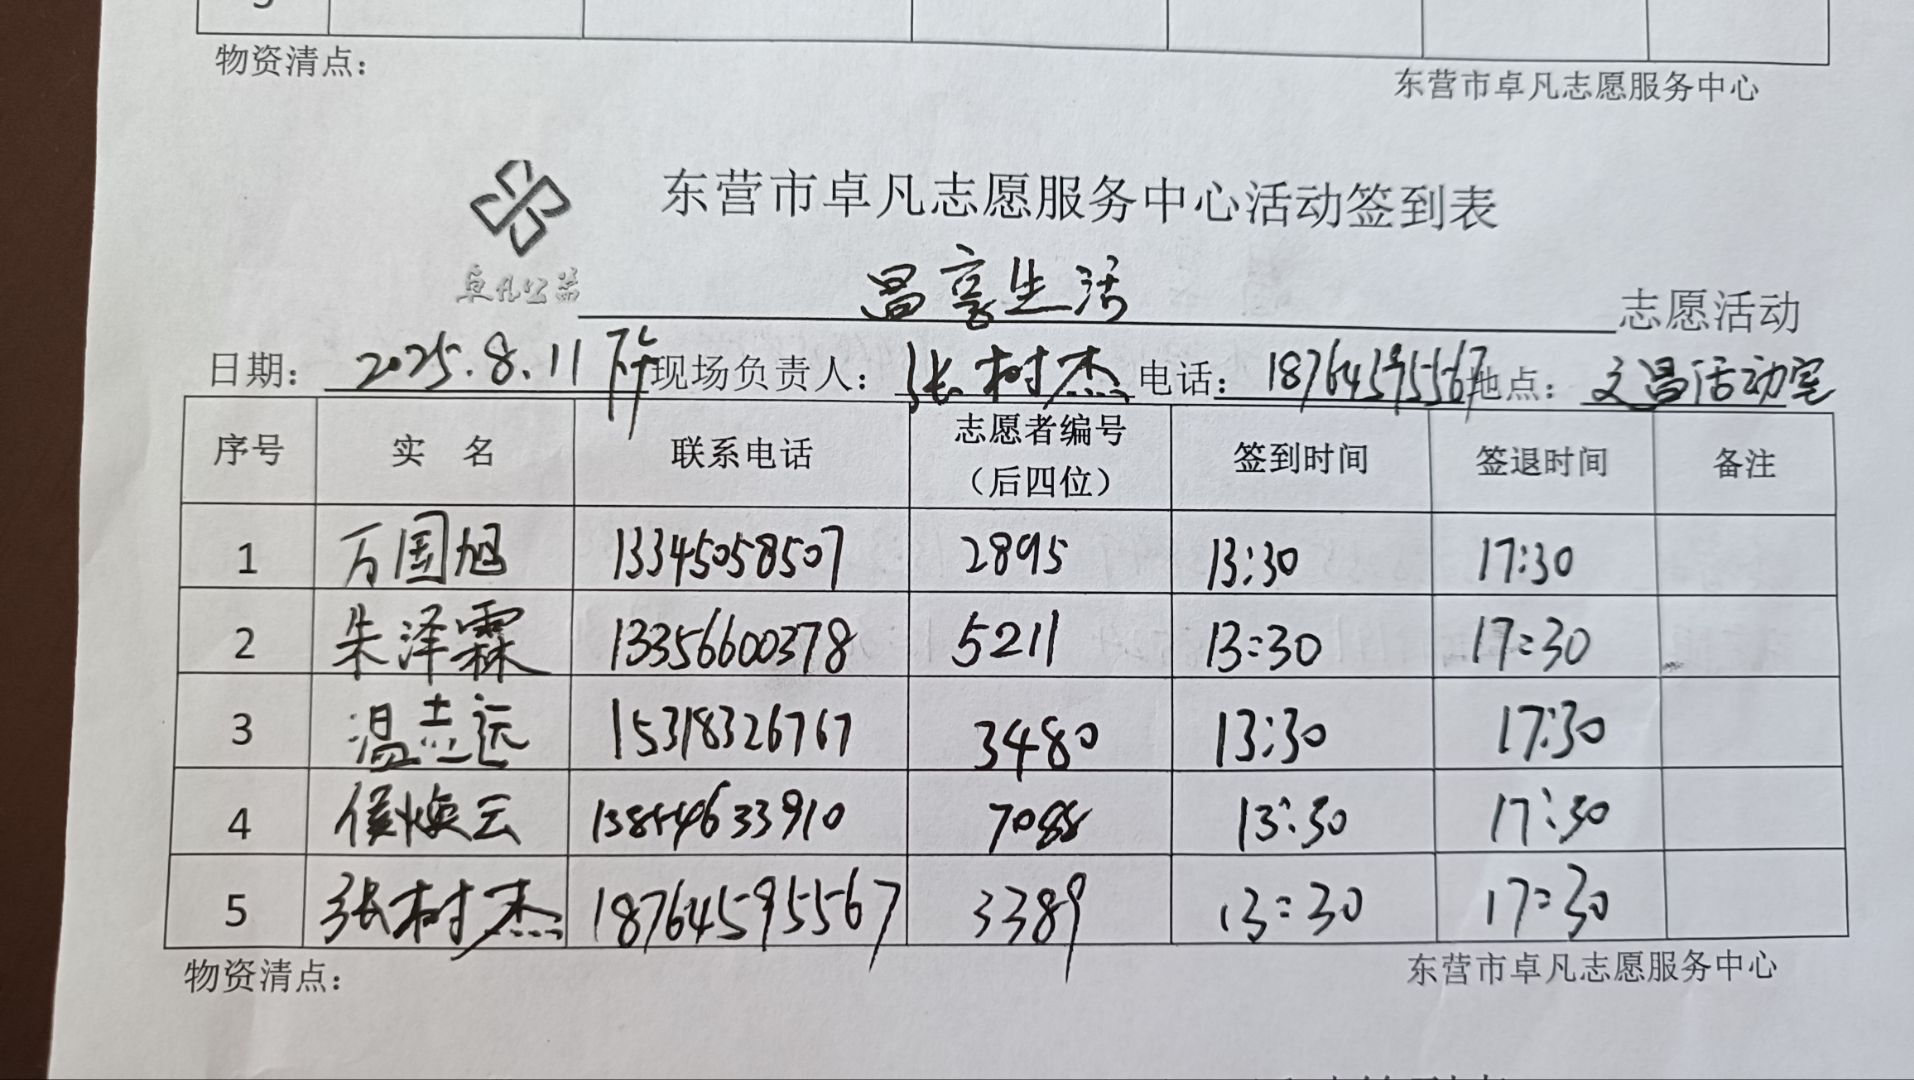 物资清点：
东营市卓凡志愿服务中心
东营市卓凡志愿服务中心活动签到表
卓凡公益
昌享生活 志愿活动
日期： 2025.8.11 下午 现场负责人： 张树杰 电话： 18764595567 地点： 文昌活动室
序号 实 名 联系电话 志愿者编号（后四位） 签到时间 签退时间 备注
1 万国旭 13345058507 2895 13:30 17:30
2 朱泽霖 13356600378 5211 13:30 17:30
3 温志远 15318326767 3480 13:30 17:30
4 侯焕云 13854633910 7088 13:30 17:30
5 张树杰 18764595567 3389 13:30 17:30
物资清点：
东营市卓凡志愿服务中心